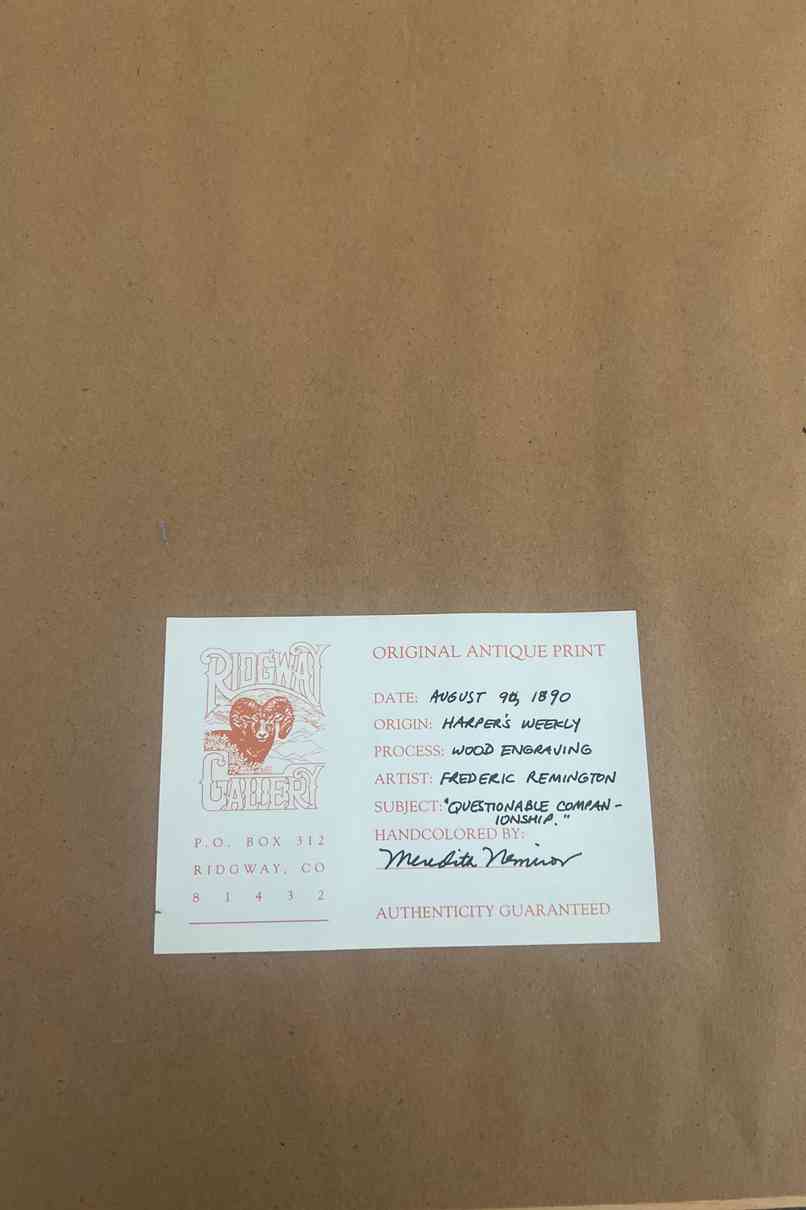 RIDGWAY
GALLERY
P.O. BOX 312
RIDGWAY, CO
81432
ORIGINAL ANTIQUE PRINT
DATE: AUGUST 9th, 1890
ORIGIN: HARPER'S WEEKLY
PROCESS: WOOD ENGRAVING
ARTIST: FREDERIC REMINGTON
SUBJECT: "QUESTIONABLE COMPAN-
IONSHIP."
HANDCOLORED BY:
Meredith Nemirov
AUTHENTICITY GUARANTEED